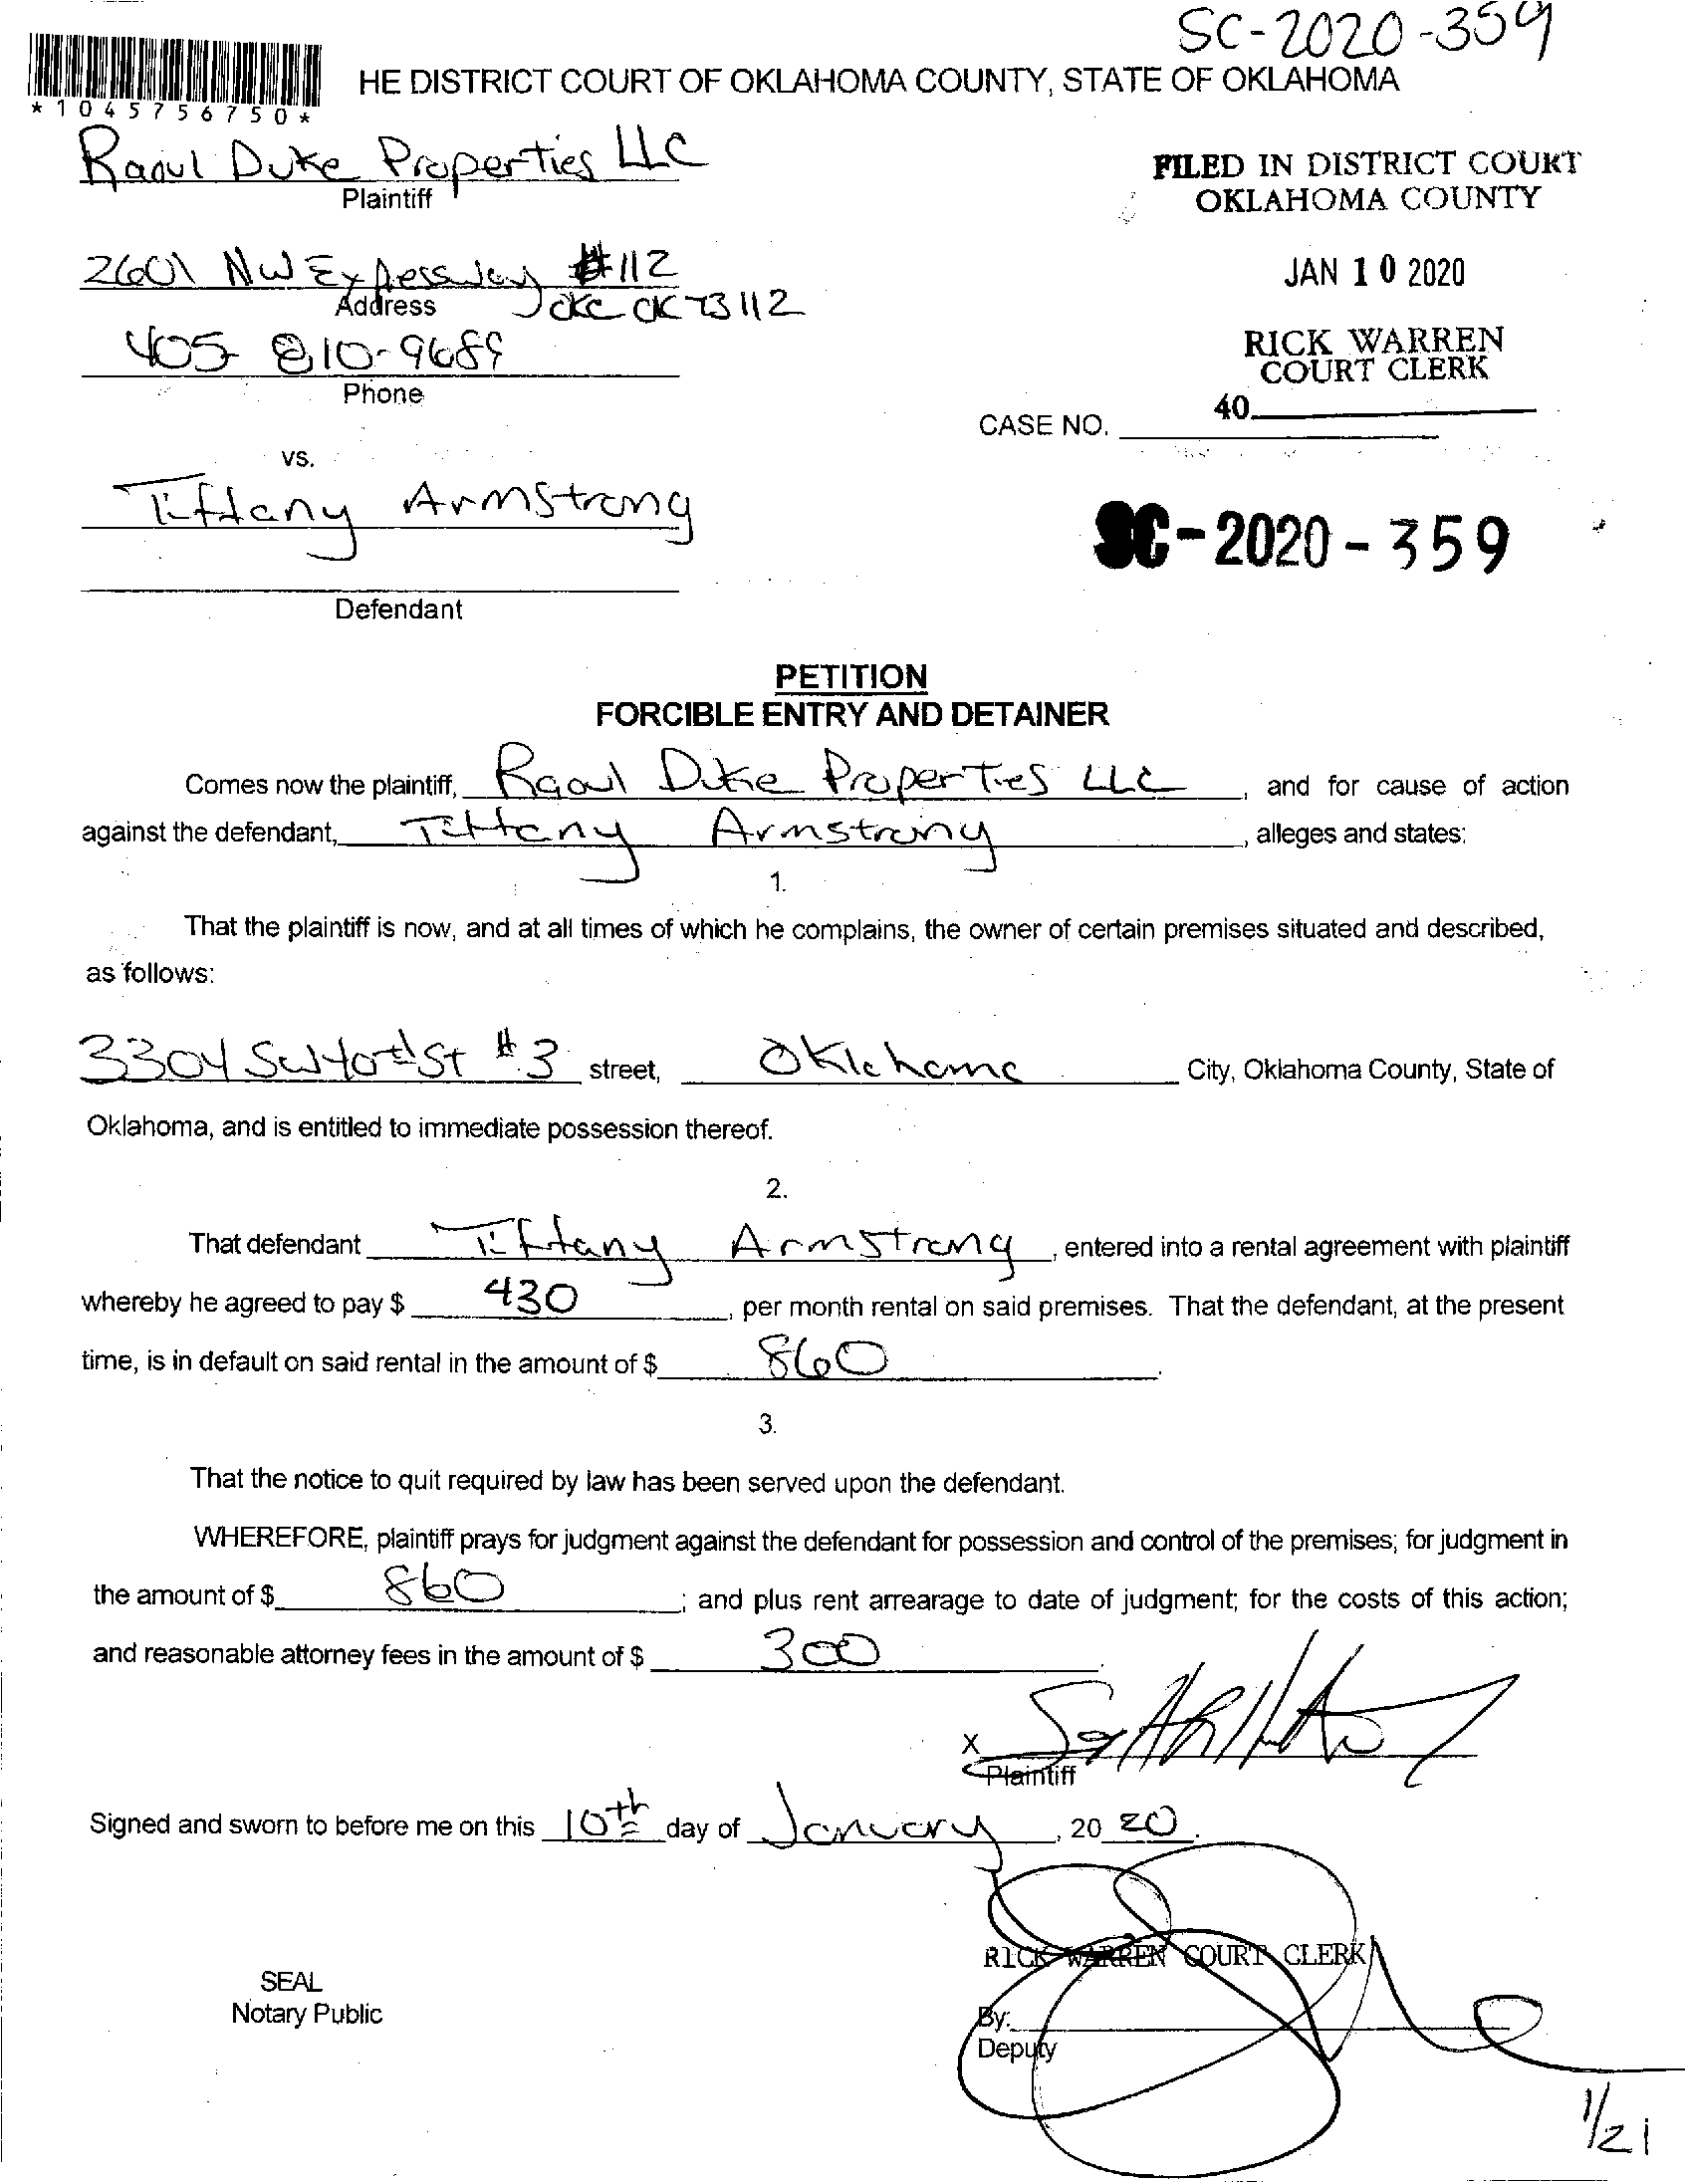 SC-2020-359
HE DISTRICT COURT OF OKLAHOMA COUNTY, STATE OF OKLAHOMA
*1045756750*
Raoul Duke Properties LLC
Plaintiff
FILED IN DISTRICT COURT
OKLAHOMA COUNTY
2601 NW Expressway #112
Address
OKC OK 73112
JAN 10 2020
405 810-9689
Phone
RICK WARREN
COURT CLERK
40
CASE NO.
vs.
Tiffany Armstrong
SC-2020-359
Defendant
PETITION
FORCIBLE ENTRY AND DETAINER
Comes now the plaintiff, Raoul Duke Properties LLC, and for cause of action
against the defendant, Tiffany Armstrong, alleges and states:
1.
That the plaintiff is now, and at all times of which he complains, the owner of certain premises situated and described,
as follows:
3304 SW 40th St #3 street, Oklahoma City, Oklahoma County, State of
Oklahoma, and is entitled to immediate possession thereof.
2.
That defendant Tiffany Armstrong, entered into a rental agreement with plaintiff
whereby he agreed to pay $ 430, per month rental on said premises. That the defendant, at the present
time, is in default on said rental in the amount of $ 860.
3.
That the notice to quit required by law has been served upon the defendant.
WHEREFORE, plaintiff prays for judgment against the defendant for possession and control of the premises; for judgment in
the amount of $ 860; and plus rent arrearage to date of judgment; for the costs of this action;
and reasonable attorney fees in the amount of $ 300.
X
Plaintiff
Signed and sworn to before me on this 10th day of January, 20 20.
RICK WARREN COURT CLERK
SEAL
Notary Public
By:
Deputy
1/21